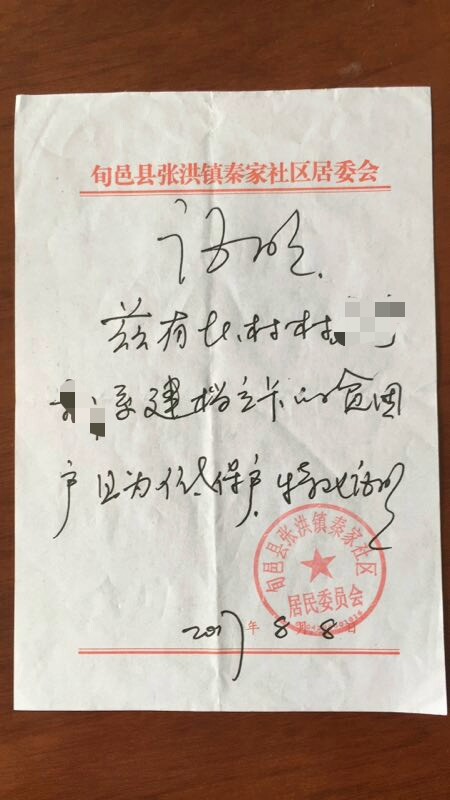 旬邑县张洪镇秦家社区居委会
证明
兹有 村村
系建档立卡的贫困
户且为低保户.特此证明
旬邑县张洪镇秦家社区
居民委员会
2017年8月8日